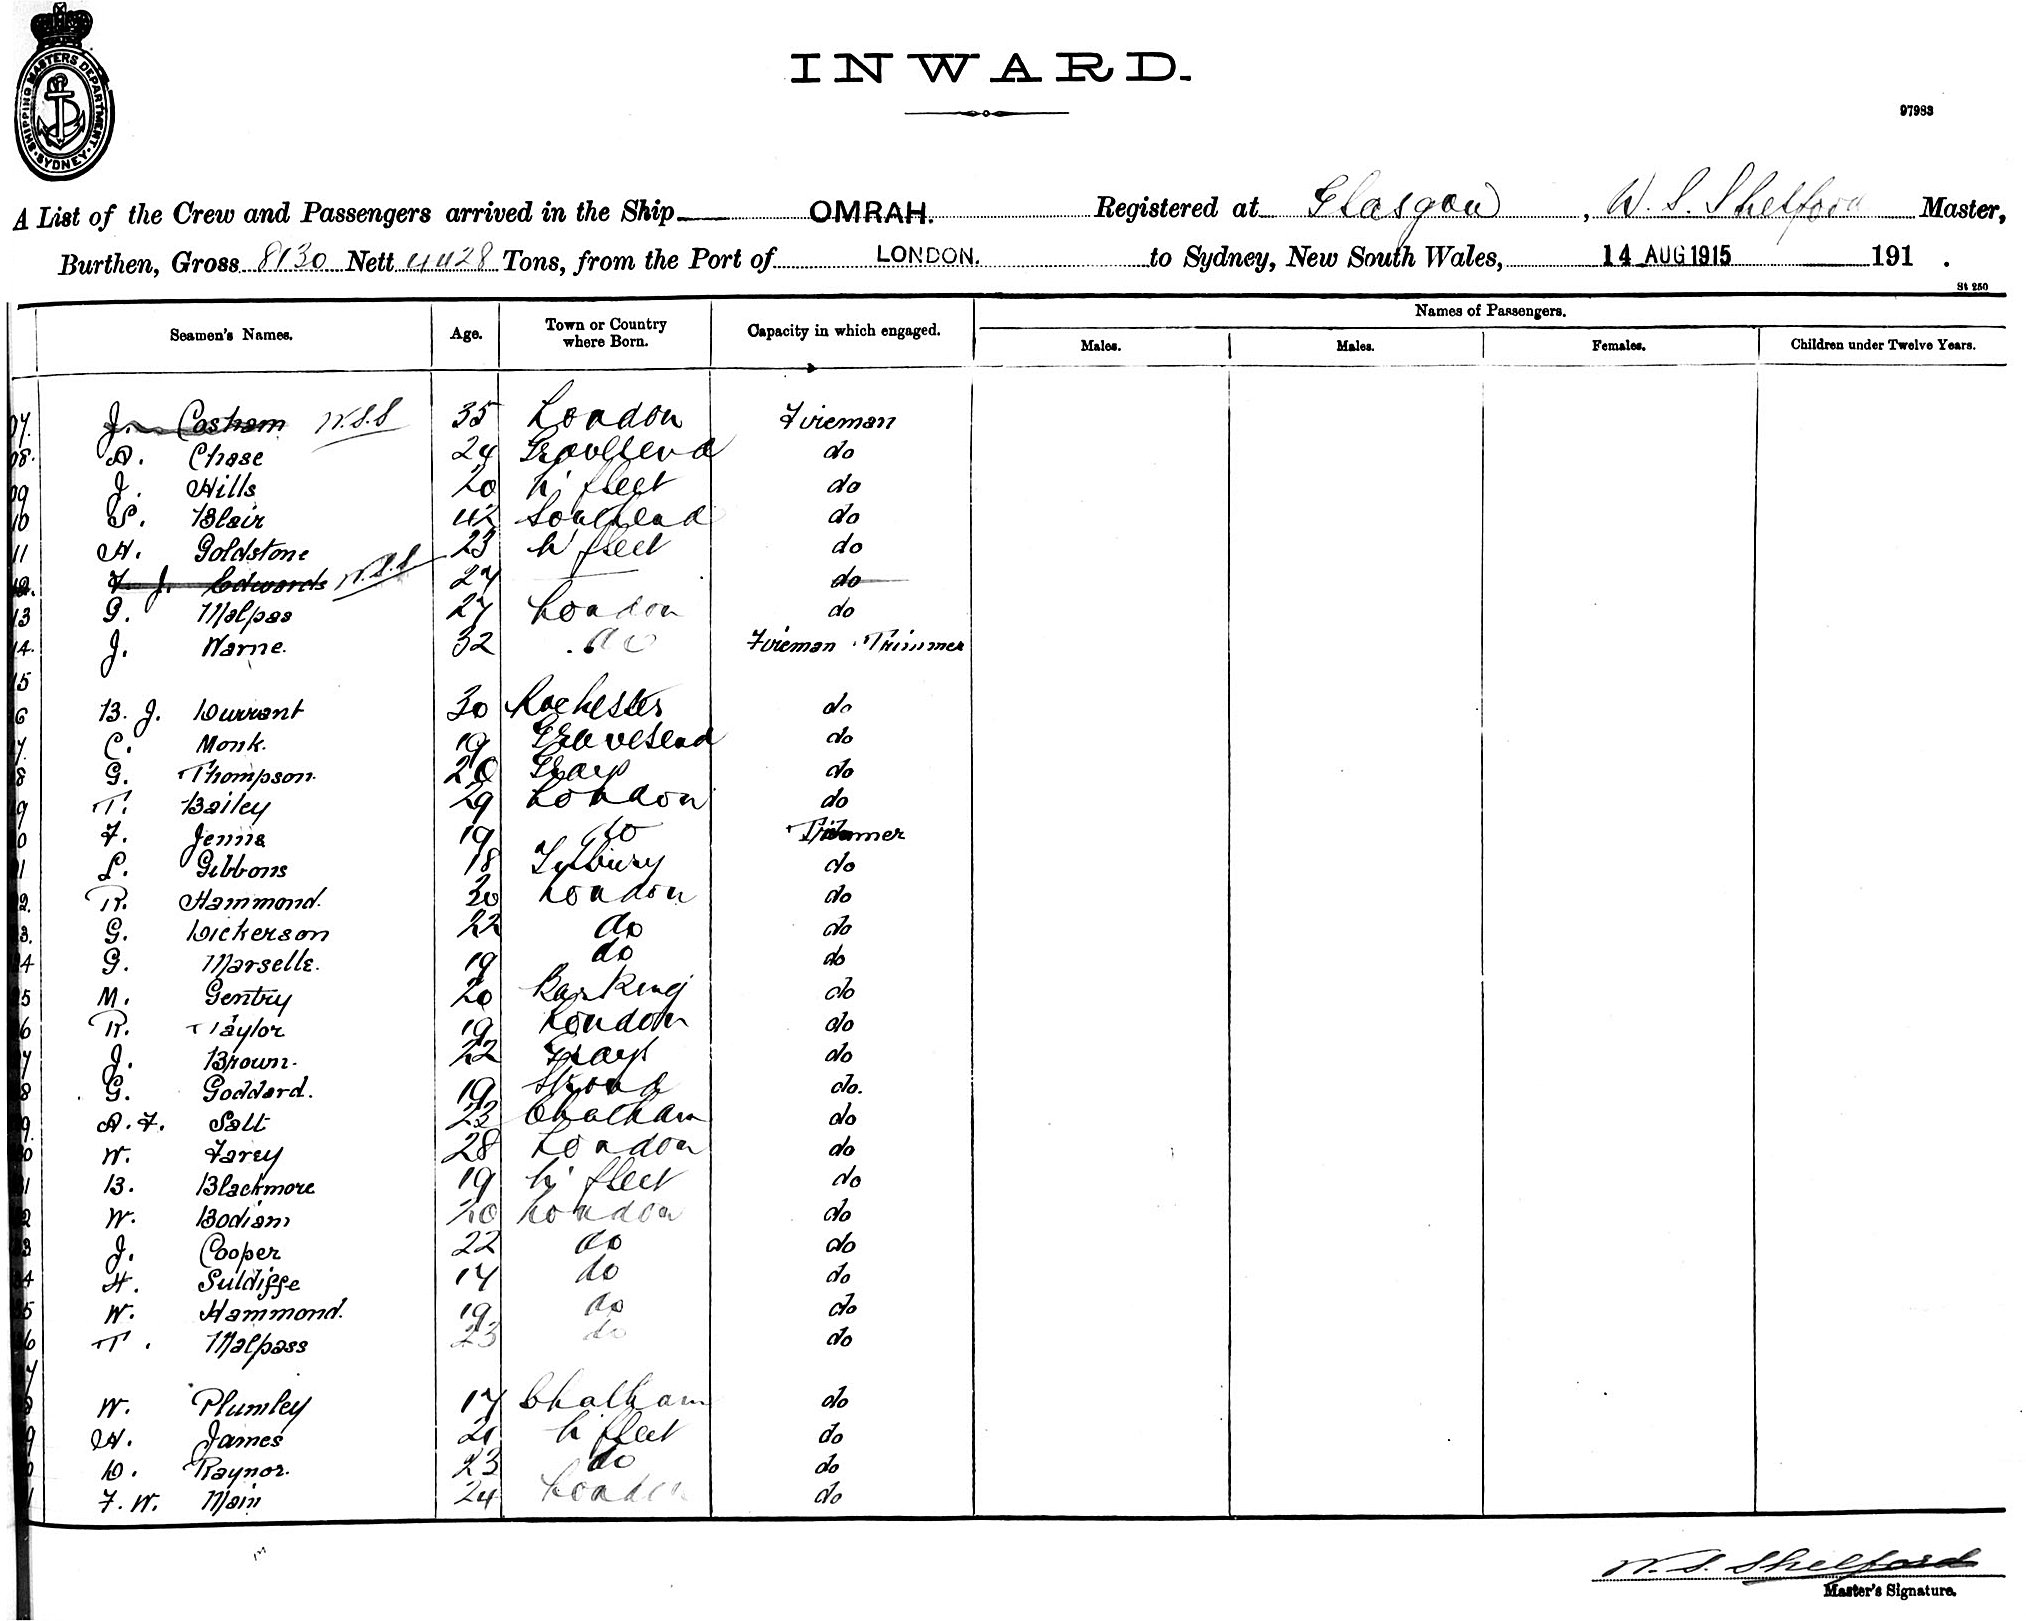 SHIPPING MASTERS DEPARTMENT. SYDNEY.
INWARD.
97983
A List of the Crew and Passengers arrived in the Ship OMRAH. Registered at Glasgow, W. S. Shelford Master,
Burthen, Gross 8130 Nett 4428 Tons, from the Port of LONDON. to Sydney, New South Wales, 14 AUG 1915 191 .
St 250
Seamen's Names. Age. Town or Country where Born. Capacity in which engaged. Names of Passengers.
Males. Males. Females. Children under Twelve Years.
07. J. Cosham W.S.S 35 London Fireman
08. A. Chase 24 Gravesend do
09 J. Hills 20 N' fleet do
10 S. Blair 42 Southend do
11 H. Goldstone 23 N' fleet do
12. F. J. Edwards W.S.S 27 do
13 G. Malpas 27 London do
14. J. Warne. 32 do Fireman Trimmer
15
6 B. J. Durrant 30 Rochester do
7. C. Monk. 19 Gravesend do
8 G. Thompson. 20 Grays do
9 T. Bailey 29 London do
0 F. Jenns 19 do Trimmer
1 L. Gibbons 18 Tilbury do
2. R. Hammond. 20 London do
3. G. Dickerson 22 do do
4 G. Marselle. 19 do do
5 M. Gentry 20 Barking do
6 R. Taylor 19 London do
7 J. Brown. 22 Grays do
8 G. Goddard. 19 Strood do.
9. A. F. Salt 23 Chatham do
0 W. Farey 28 London do
1 B. Blackmore 19 N' fleet do
2 W. Bodiam 20 London do
3 J. Cooper 22 do do
4 H. Suldiffe 17 do do
5 W. Hammond. 19 do do
6 T. Malpass 23 do do
7
8 W. Plumley 17 Chatham do
9 H. James 21 N' fleet do
0 D. Raynor. 23 do do
1 F. W. Main 24 London do
W. S. Shelford
Master's Signature.